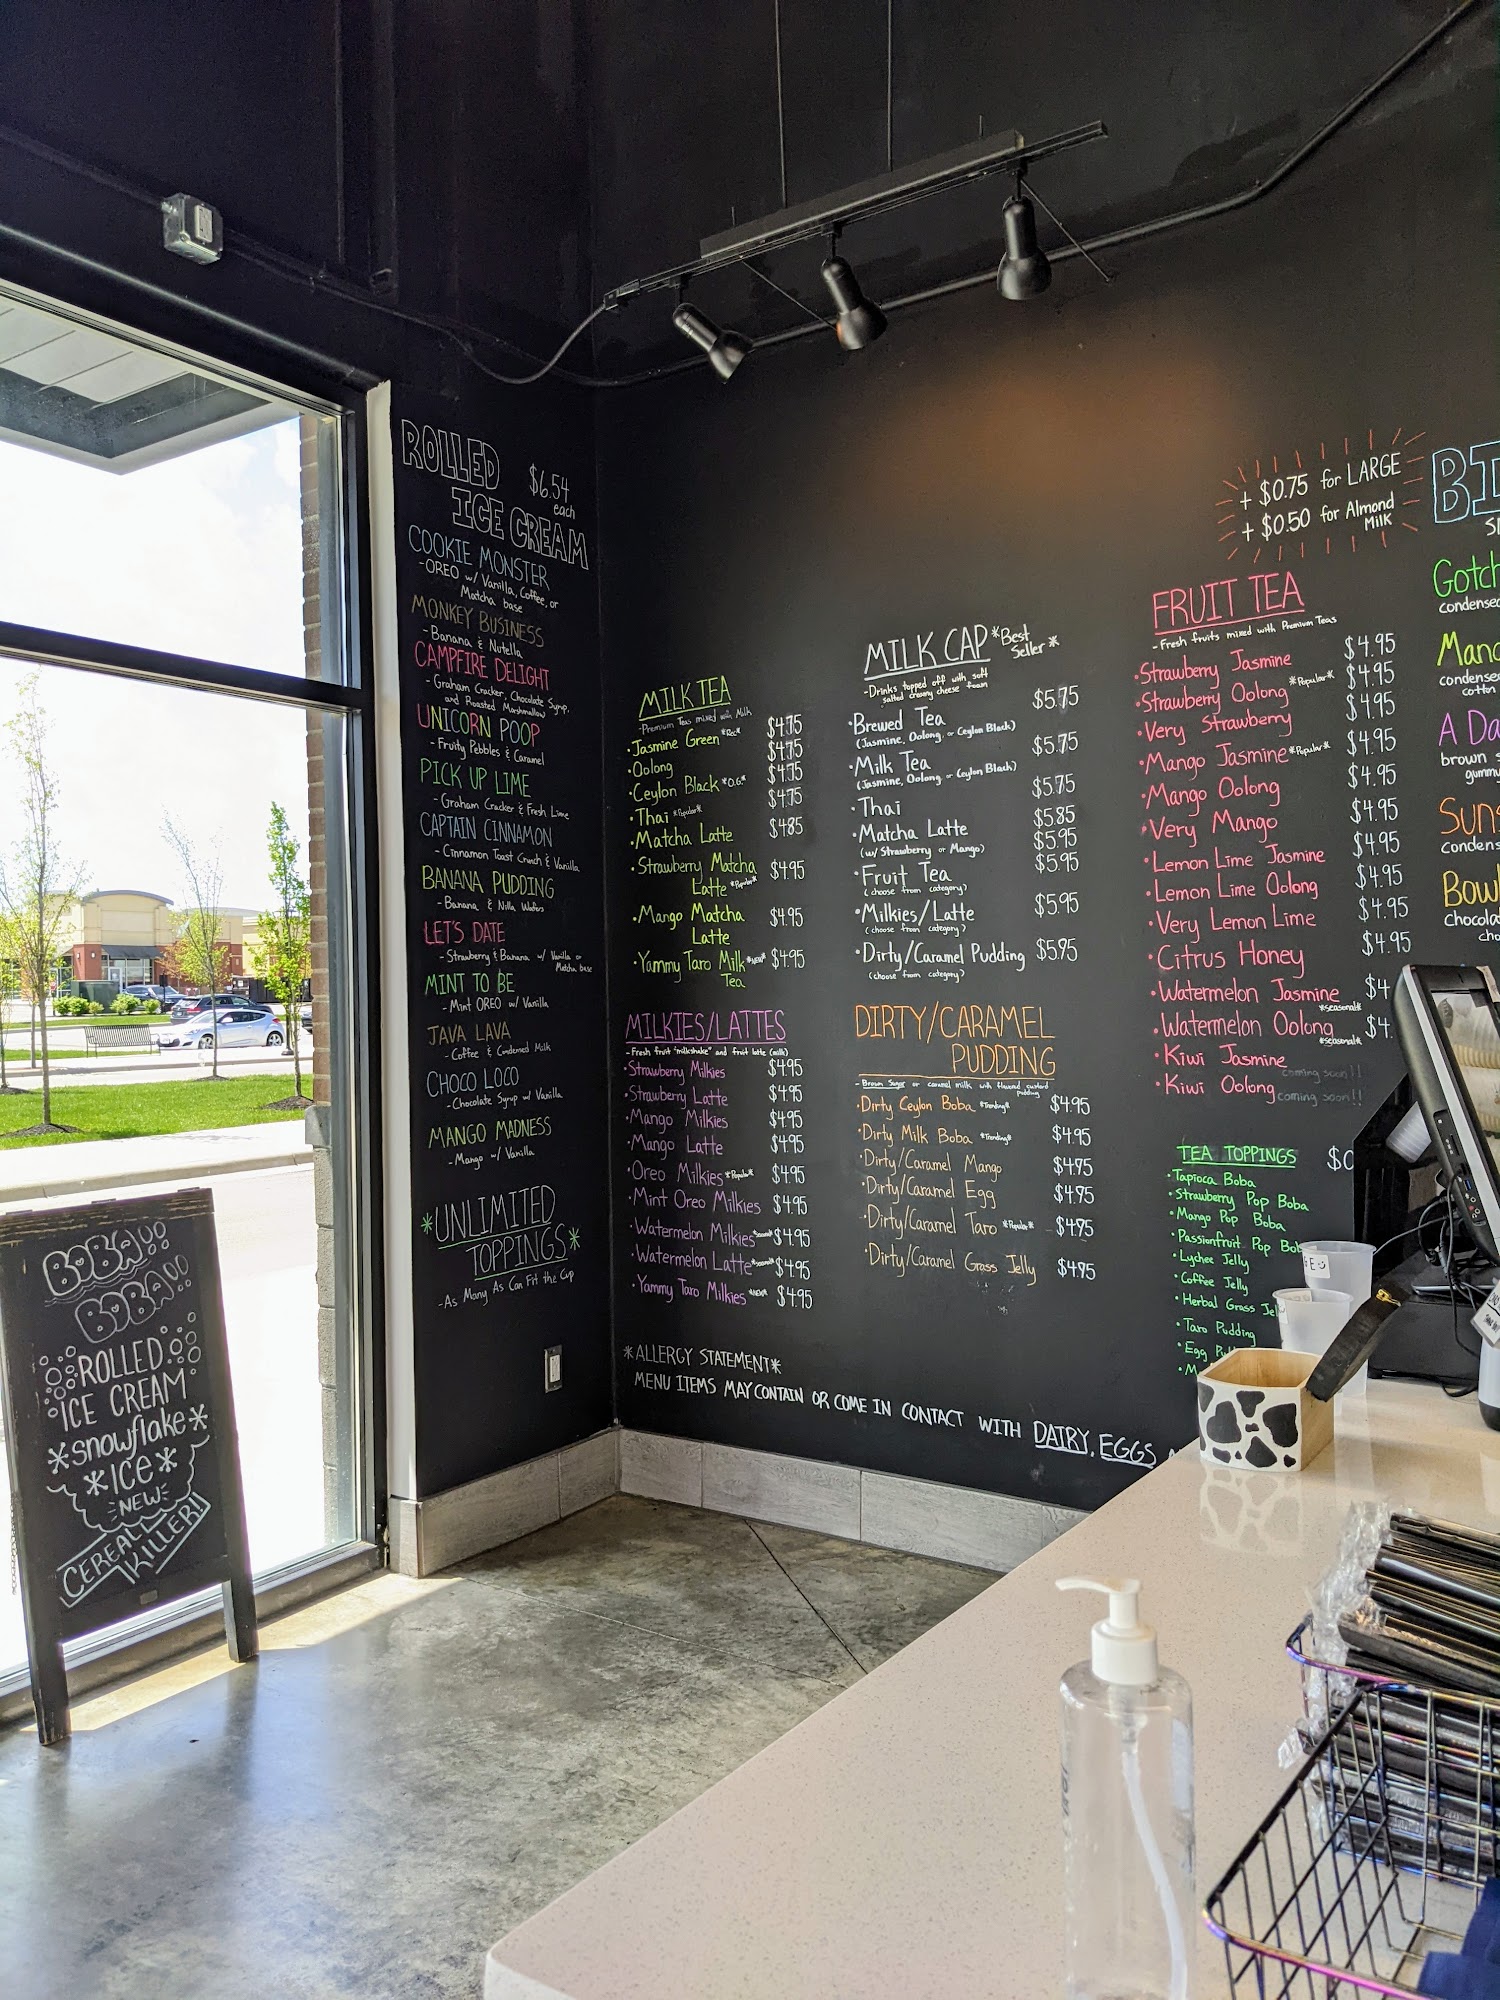 ROLLED
ICE CREAM
$6.54
each
COOKIE MONSTER
-OREO w/ Vanilla, Coffee, or
Matcha base
MONKEY BUSINESS
-Banana & Nutella
CAMPFIRE DELIGHT
-Graham Cracker, Chocolate Syrup,
and Roasted Marshmallow
UNICORN POOP
-Fruity Pebbles & Caramel
PICK UP LIME
-Graham Cracker & Fresh Lime
CAPTAIN CINNAMON
-Cinnamon Toast Crunch & Vanilla
BANANA PUDDING
-Banana & Nilla Wafers
LET'S DATE
-Strawberry & Banana w/ Vanilla or
Matcha base
MINT TO BE
-Mint OREO w/ Vanilla
JAVA LAVA
-Coffee & Condensed Milk
CHOCO LOCO
-Chocolate Syrup w/ Vanilla
MANGO MADNESS
-Mango w/ Vanilla
*UNLIMITED
TOPPINGS*
-As Many As Can Fit the Cup
BOBA!!
BOBA!!
ROLLED
ICE CREAM
*snowflake*
*ICE*
-NEW-
CEREAL
KILLER!
MILK TEA
-Premium Teas mixed with Milk
•Jasmine Green *Rec* $4.75
•Oolong $4.75
•Ceylon Black *O.G.* $4.75
•Thai *Popular* $4.75
•Matcha Latte $4.85
•Strawberry Matcha
Latte *Popular* $4.95
•Mango Matcha
Latte $4.95
•Yammy Taro Milk *NEW* $4.95
Tea
MILKIES/LATTES
-Fresh fruit "milkshake" and fruit latte (milk)
•Strawberry Milkies $4.95
•Strawberry Latte $4.95
•Mango Milkies $4.95
•Mango Latte $4.95
•Oreo Milkies *Popular* $4.95
•Mint Oreo Milkies $4.95
•Watermelon Milkies *seasonal* $4.95
•Watermelon Latte *seasonal* $4.95
•Yammy Taro Milkies *NEW* $4.95
MILK CAP *Best
Seller*
-Drinks topped off with soft
salted creamy cheese foam
•Brewed Tea $5.75
(Jasmine, Oolong, or Ceylon Black)
•Milk Tea $5.75
(Jasmine, Oolong or Ceylon Black)
•Thai $5.75
•Matcha Latte $5.85
(w/ Strawberry or Mango) $5.95
•Fruit Tea $5.95
(choose from category)
•Milkies/Latte $5.95
(choose from category)
•Dirty/Caramel Pudding $5.95
(choose from category)
DIRTY/CARAMEL
PUDDING
-Brown Sugar or caramel milk with flavored custard
pudding
•Dirty Ceylon Boba *Trending* $4.95
•Dirty Milk Boba *Trending* $4.95
•Dirty/Caramel Mango $4.95
•Dirty/Caramel Egg $4.95
•Dirty/Caramel Taro *Popular* $4.95
•Dirty/Caramel Grass Jelly $4.95
*ALLERGY STATEMENT*
MENU ITEMS MAY CONTAIN OR COME IN CONTACT WITH DAIRY, EGGS
+ $0.75 for LARGE
+ $0.50 for Almond
Milk
FRUIT TEA
-Fresh fruits mixed with Premium Teas
•Strawberry Jasmine $4.95
•Strawberry Oolong *Popular* $4.95
•Very Strawberry $4.95
•Mango Jasmine *Popular* $4.95
•Mango Oolong $4.95
•Very Mango $4.95
•Lemon Lime Jasmine $4.95
•Lemon Lime Oolong $4.95
•Very Lemon Lime $4.95
•Citrus Honey $4.95
•Watermelon Jasmine $4
*seasonal*
•Watermelon Oolong $4.
*seasonal*
•Kiwi Jasmine coming soon!!
•Kiwi Oolong coming soon!!
TEA TOPPINGS $0
•Tapioca Boba
•Strawberry Pop Boba
•Mango Pop Boba
•Passionfruit Pop Bob
•Lychee Jelly
•Coffee Jelly
•Herbal Grass Jel
•Taro Pudding
•Egg Pu
•M
BI
Gotch
condensed
Mang
condensed
cotton
A Da
brown s
gummy
Suns
condens
Bowl
chocola
cho